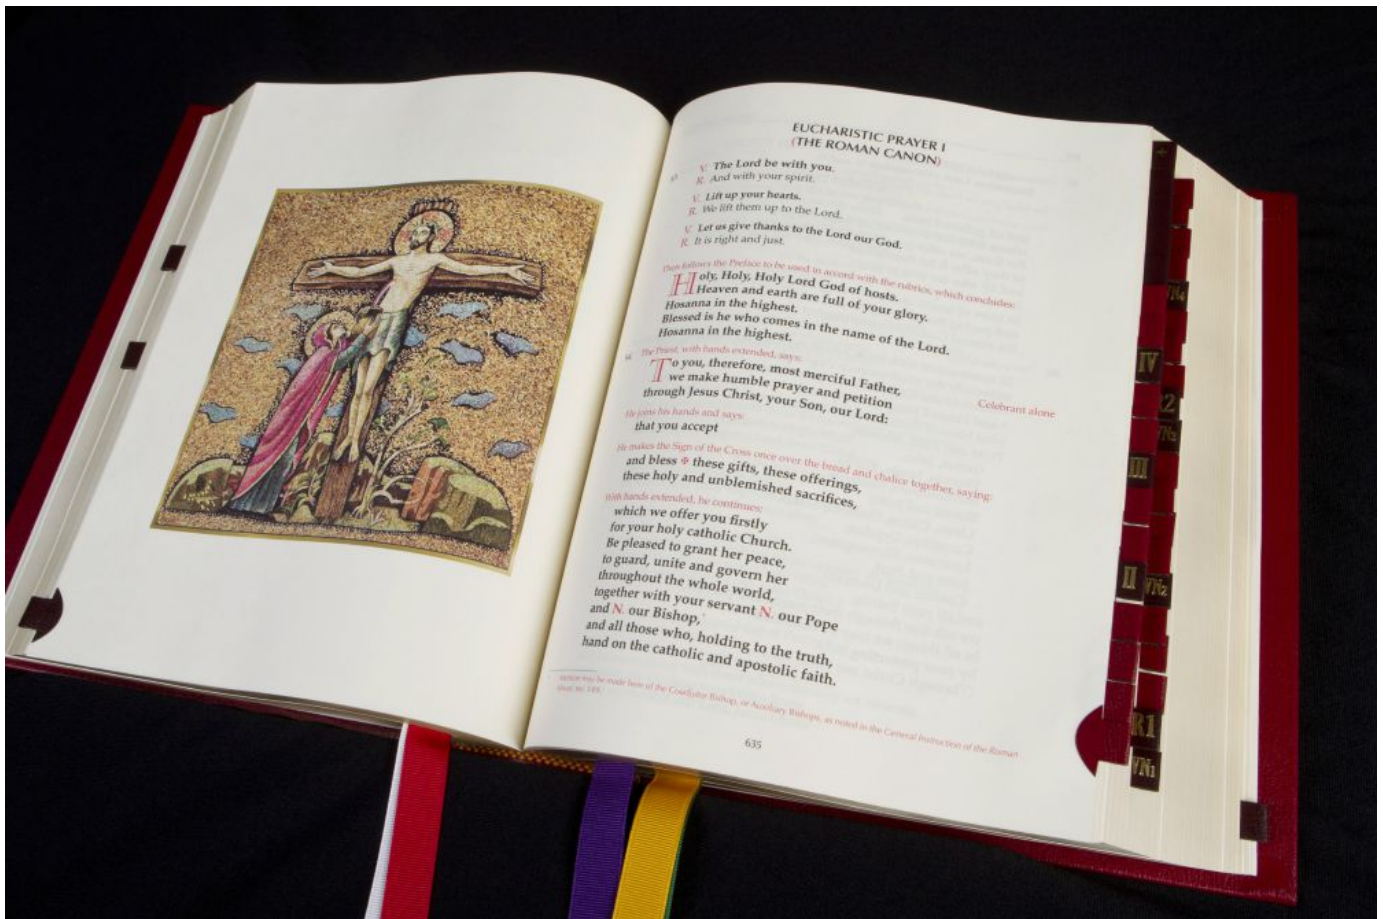 EUCHARISTIC PRAYER I
(THE ROMAN CANON)
V. The Lord be with you.
R. And with your spirit.
V. Lift up your hearts.
R. We lift them up to the Lord.
V. Let us give thanks to the Lord our God.
R. It is right and just.
Then follows the Preface to be used in accord with the rubrics, which concludes:
Holy, Holy, Holy Lord God of hosts.
Heaven and earth are full of your glory.
Hosanna in the highest.
Blessed is he who comes in the name of the Lord.
Hosanna in the highest.
The Priest, with hands extended, says:
To you, therefore, most merciful Father,
we make humble prayer and petition
through Jesus Christ, your Son, our Lord:
Celebrant alone
He joins his hands and says:
that you accept
He makes the Sign of the Cross once over the bread and chalice together, saying:
and bless ✠ these gifts, these offerings,
these holy and unblemished sacrifices,
With hands extended, he continues:
which we offer you firstly
for your holy catholic Church.
Be pleased to grant her peace,
to guard, unite and govern her
throughout the whole world,
together with your servant N. our Pope
and N. our Bishop,*
and all those who, holding to the truth,
hand on the catholic and apostolic faith.
* Mention may be made here of the Coadjutor Bishop, or Auxiliary Bishops, as noted in the General Instruction of the Roman
Missal, no. 149.
635
VN4
IV
R2
VN3
III
II
VN2
R1
VN1